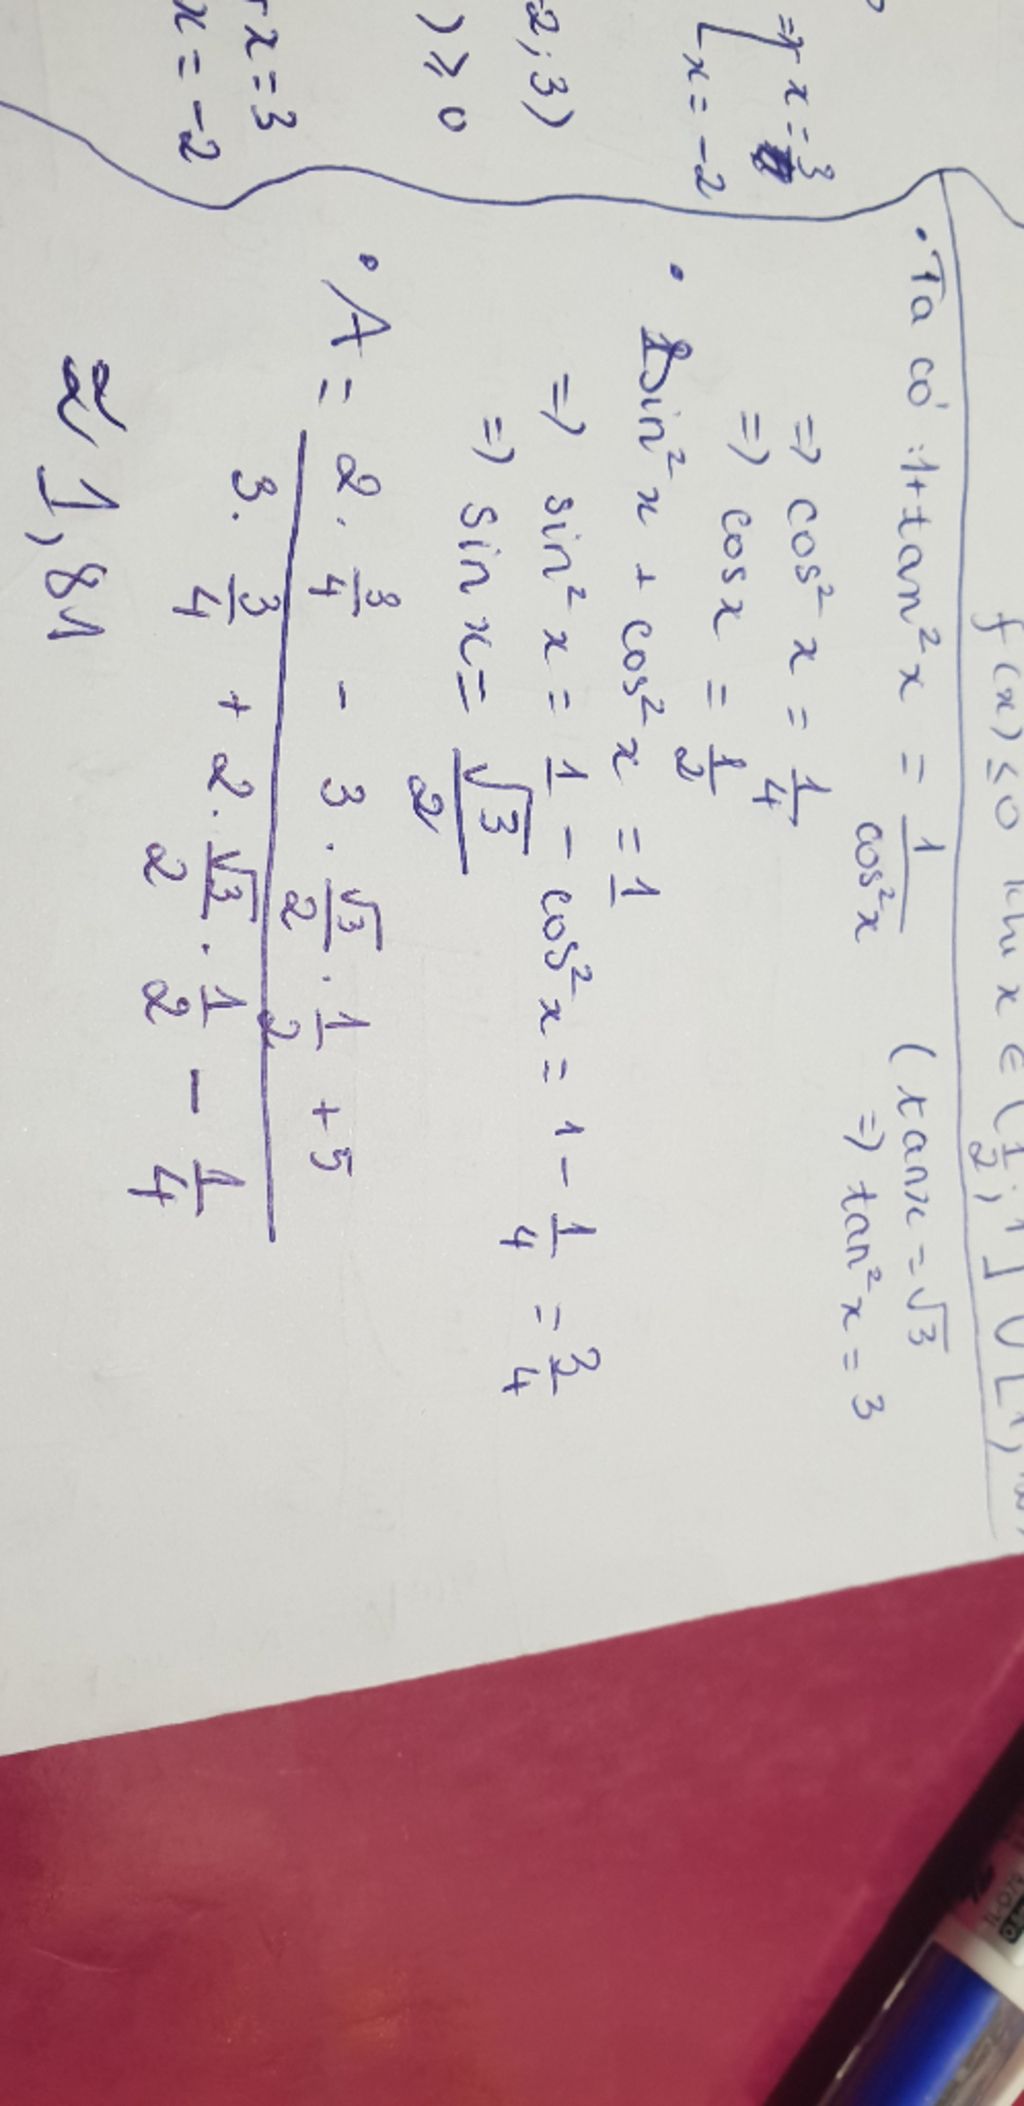 => [ x = 3
x = -2
-2; 3)
) ≥ 0
x = 3
x = -2
f(x) ≤ 0 khi x ∈ (1/2; 1] ∪ [
• Ta có: 1 + tan²x = 1/cos²x (tanx = √3
=> tan²x = 3
=> cos²x = 1/4
=> cosx = 1/2
• sin²x + cos²x = 1
=> sin²x = 1 - cos²x = 1 - 1/4 = 3/4
=> sinx = √3/2
• A = 2. 3/4 - 3. √3/2 . 1/2 + 5
3. 3/4 + 2. √3/2 . 1/2 - 1/4
≈ 1,81